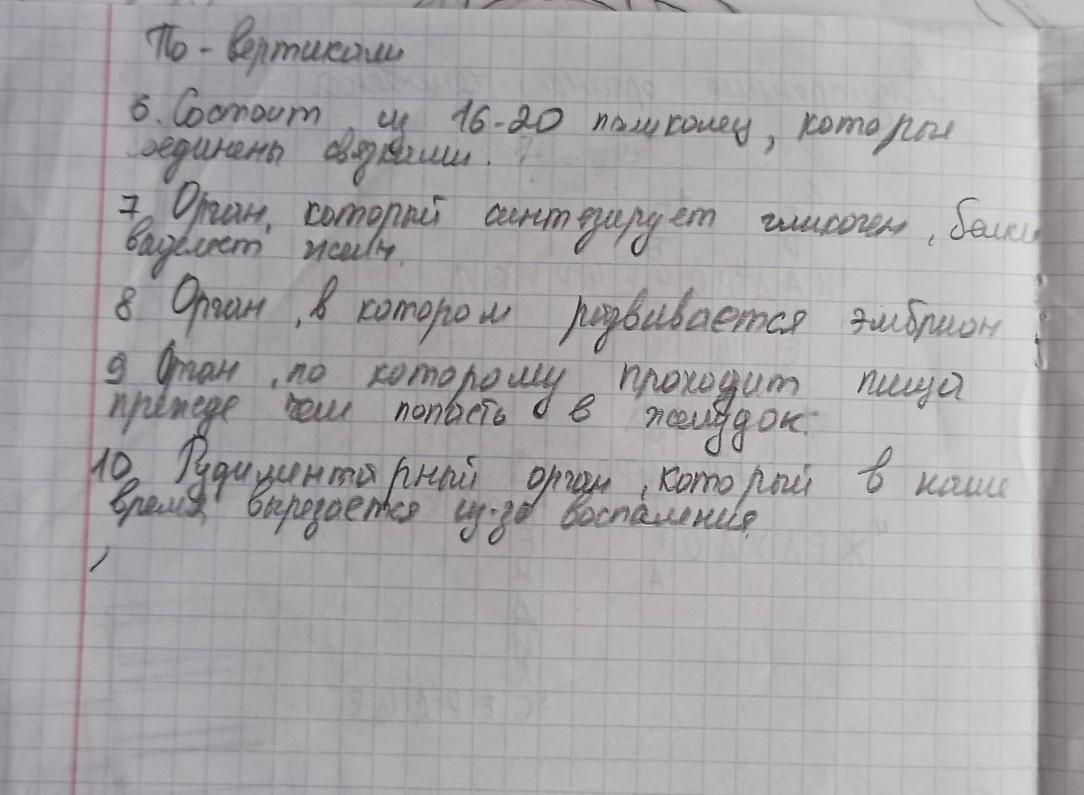 По - вертикали
6. Состоит из 16-20 полуколец, которые
соединены связками.
7. Орган, который синтезирует гликоген, белки
выделяет желч.
8 Орган, в котором развивается эмбрион
9 Орган, по которому проходит пища
прежде чем попасть в желудок.
10. Рудиментарный орган, который в наше
время, вырезается из-за воспаления.